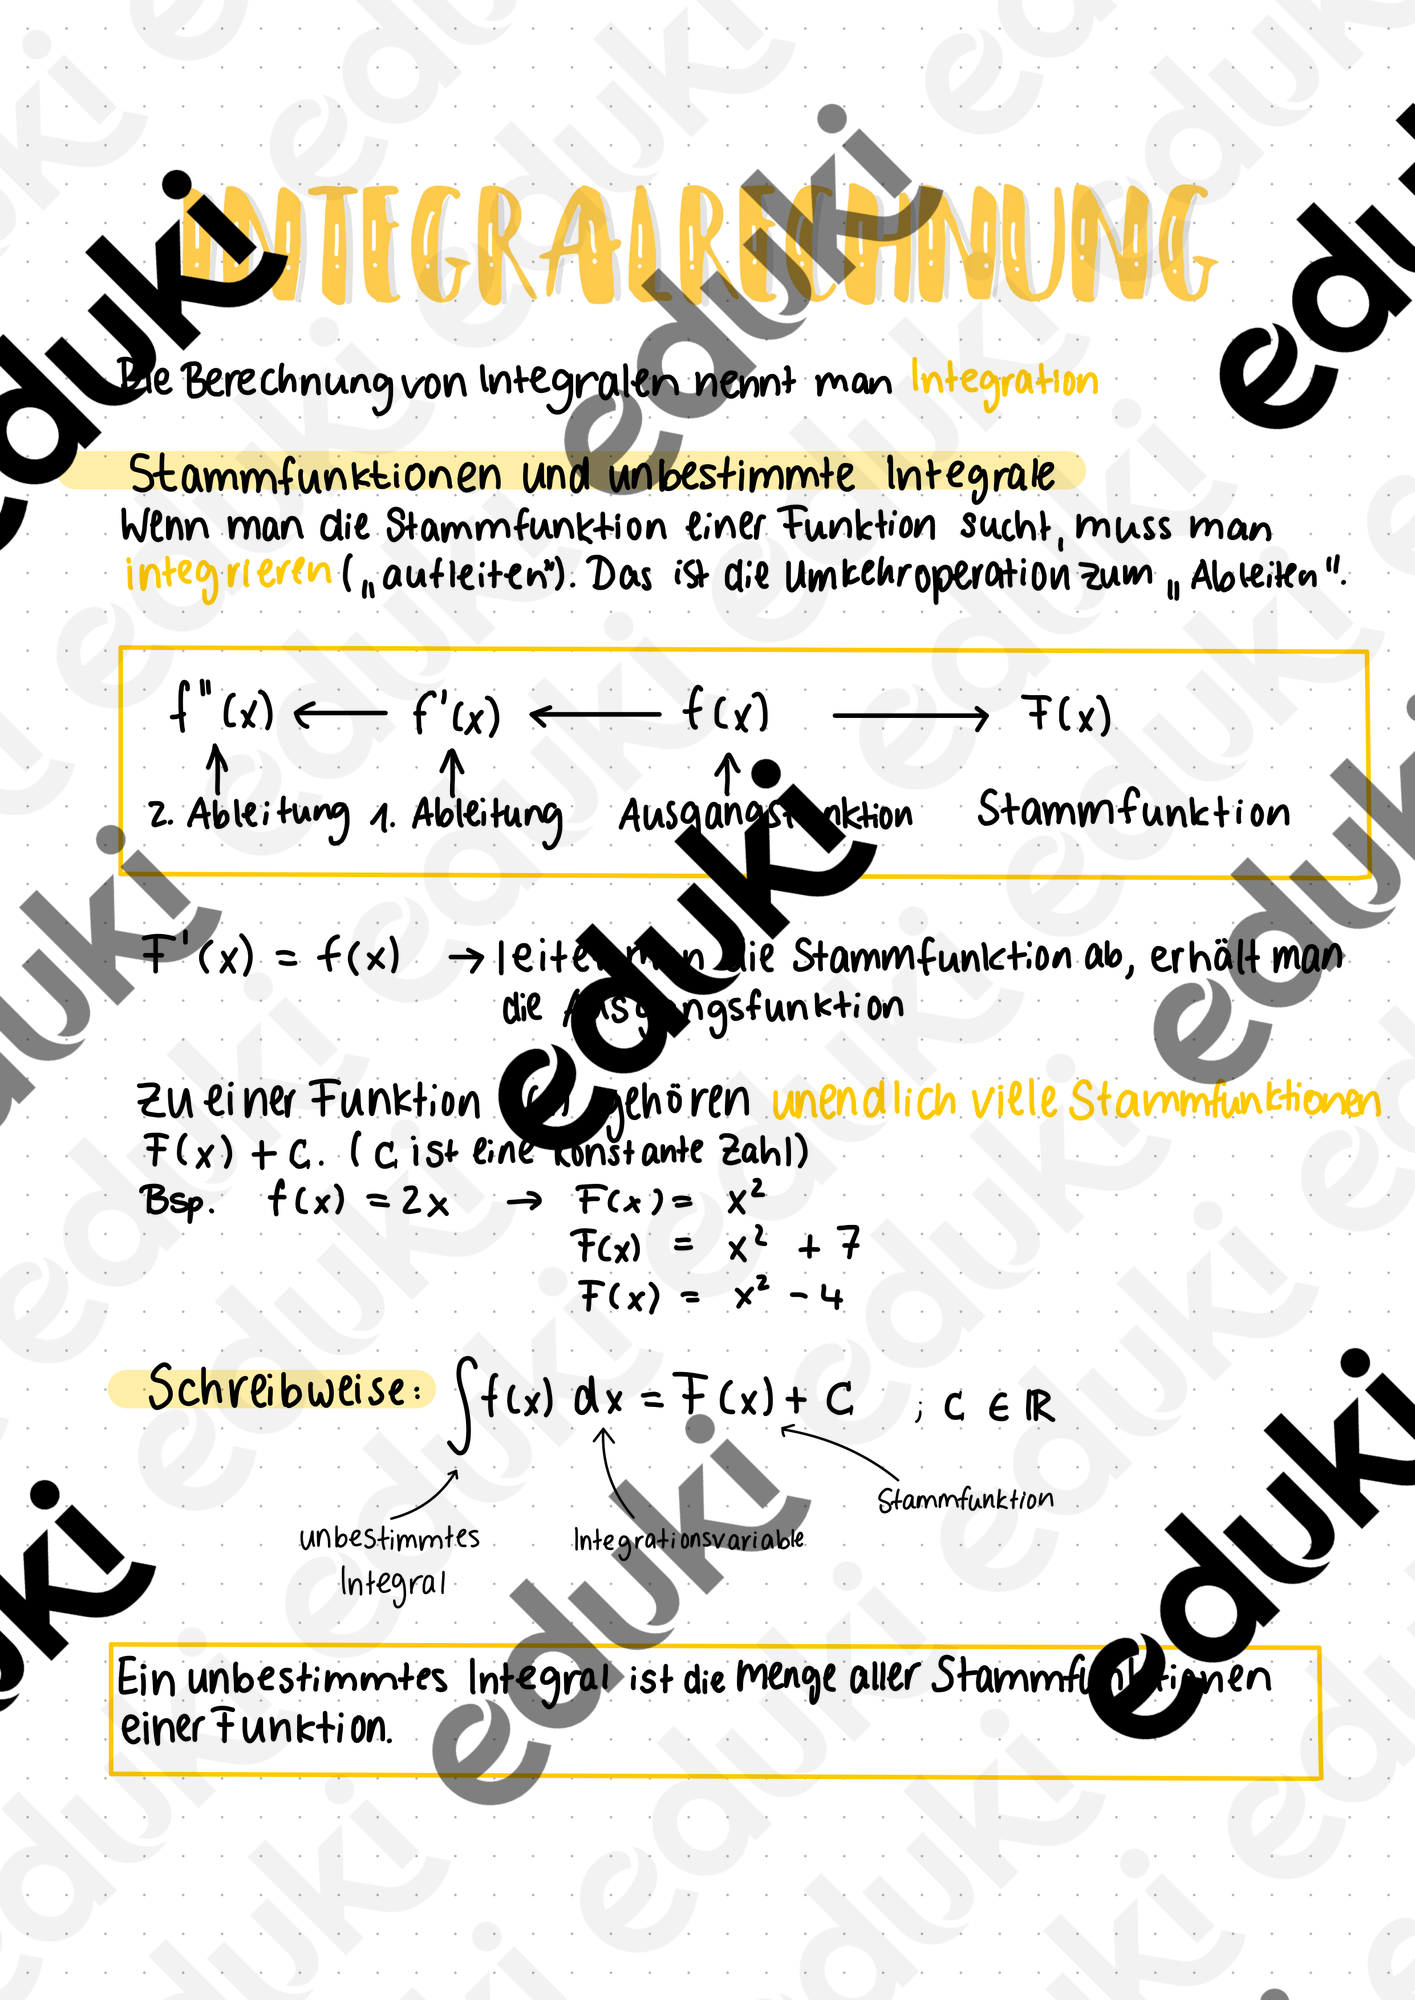 INTEGRALRECHNUNG
Die Berechnung von Integralen nennt man Integration
Stammfunktionen und unbestimmte Integrale
Wenn man die Stammfunktion einer Funktion sucht, muss man
integrieren („aufleiten"). Das ist die Umkehroperation zum „Ableiten".
f''(x) ← f'(x) ← f(x) → F(x)
↑ ↑ ↑
2. Ableitung 1. Ableitung Ausgangsfunktion Stammfunktion
F'(x) = f(x) → leitet man die Stammfunktion ab, erhält man
die Ausgangsfunktion
Zu einer Funktion gehören unendlich viele Stammfunktionen
F(x) + C. (C ist eine konstante Zahl)
Bsp. f(x) = 2x → F(x) = x²
F(x) = x² + 7
F(x) = x² - 4
Schreibweise: ∫f(x) dx = F(x) + C ; C ∈ ℝ
Stammfunktion
unbestimmtes Integrationsvariable
Integral
Ein unbestimmtes Integral ist die Menge aller Stammfunktionen
einer Funktion.
eduki
eduki
eduki
eduki
eduki
eduki
eduki
eduki
eduki